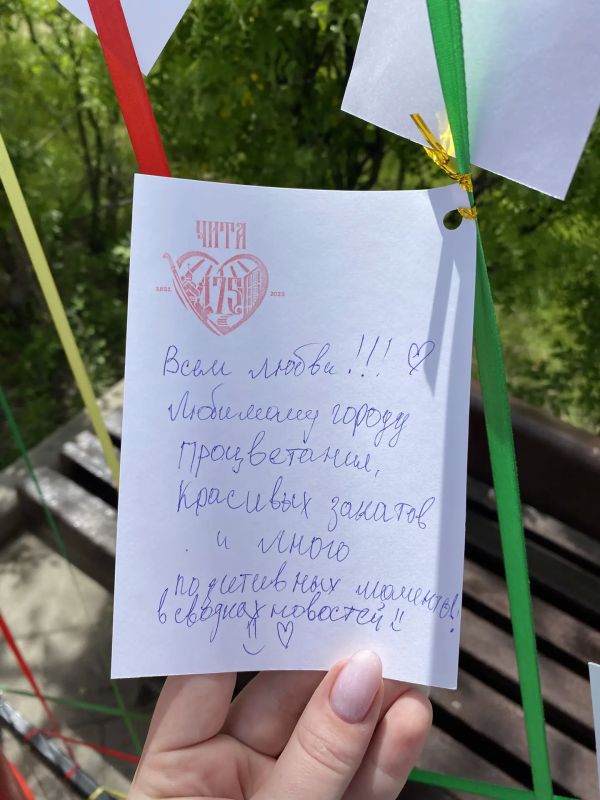 ЧИТА
175
1851 2026
Всем любви!!! ♡
Любимому городу
процветания,
красивых закатов
и много
позитивных моментов!
в сводках новостей!!
♡